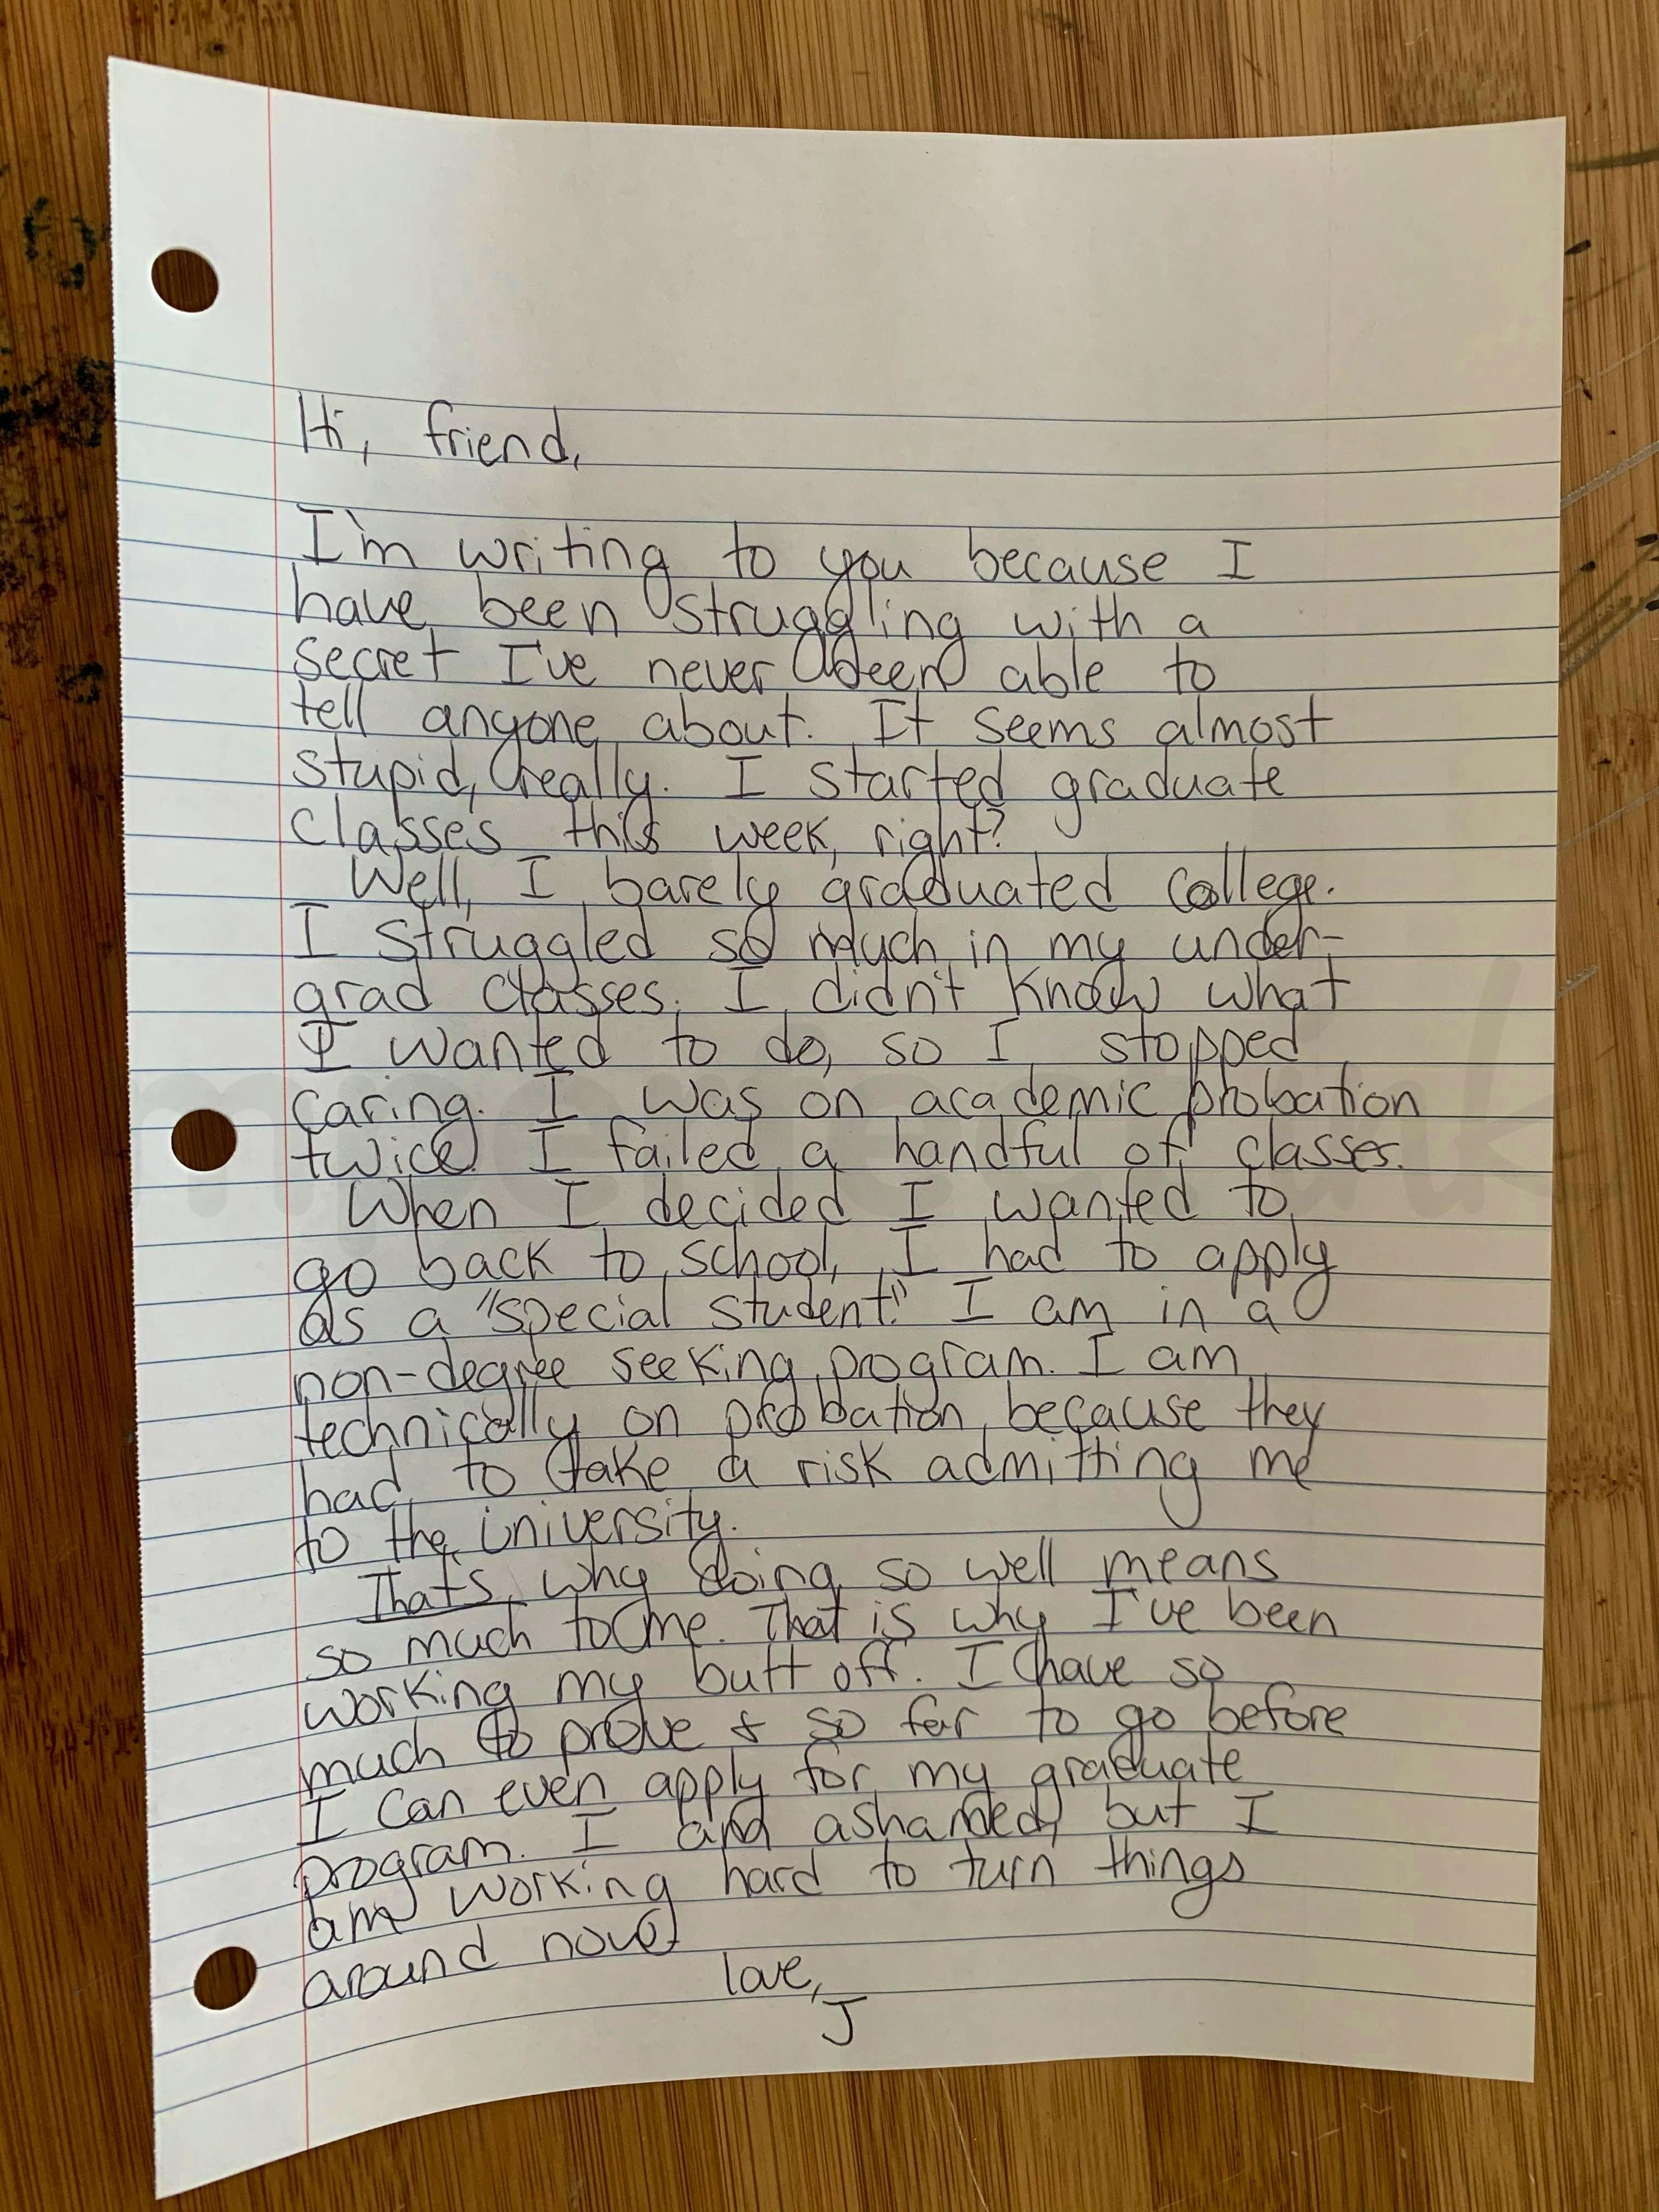 Hi, friend,
I'm writing to you because I
have been struggling with a
secret I've never been able to
tell anyone about. It seems almost
stupid, really. I started graduate
classes this week, right?
Well, I barely graduated college.
I struggled so much in my under-
grad classes. I didn't know what
I wanted to do, so I stopped
caring. I was on academic probation
twice. I failed a handful of classes.
When I decided I wanted to
go back to school, I had to apply
as a "special student." I am in a
non-degree seeking program. I am
technically on probation, because they
had to take a risk admitting me
to the university.
Thats why doing so well means
so much to me. That is why I've been
working my butt off. I have so
much to prove & so far to go before
I can even apply for my graduate
program. I am ashamed, but I
am working hard to turn things
around now.
love,
J